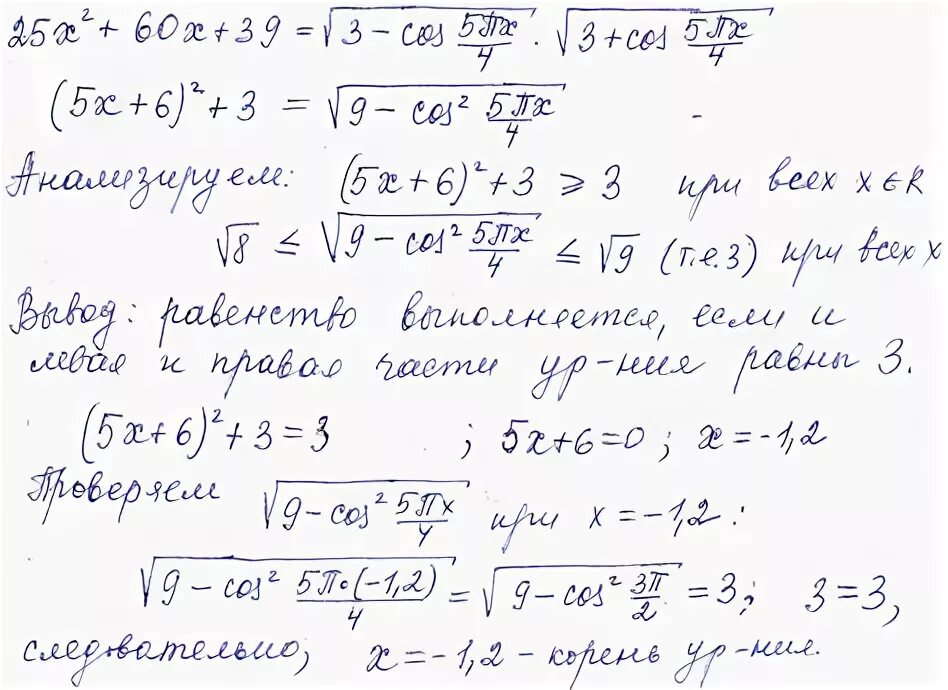 25x² + 60x + 39 = √(3 − cos 5πx/4) · √(3 + cos 5πx/4)
(5x + 6)² + 3 = √(9 − cos² 5πx/4)
Анализируем: (5x + 6)² + 3 ⩾ 3 при всех x ∈ R
√8 ≤ √(9 − cos² 5πx/4) ≤ √9 (т.е. 3) при всех x
Вывод: равенство выполняется, если и
левая и правая части ур-ния равны 3.
(5x + 6)² + 3 = 3 ; 5x + 6 = 0 ; x = −1,2
Проверяем √(9 − cos² 5πx/4) при x = −1,2 :
√(9 − cos² 5π·(−1,2)/4) = √(9 − cos² 3π/2) = 3; 3 = 3,
следовательно, x = −1,2 – корень ур-ния.